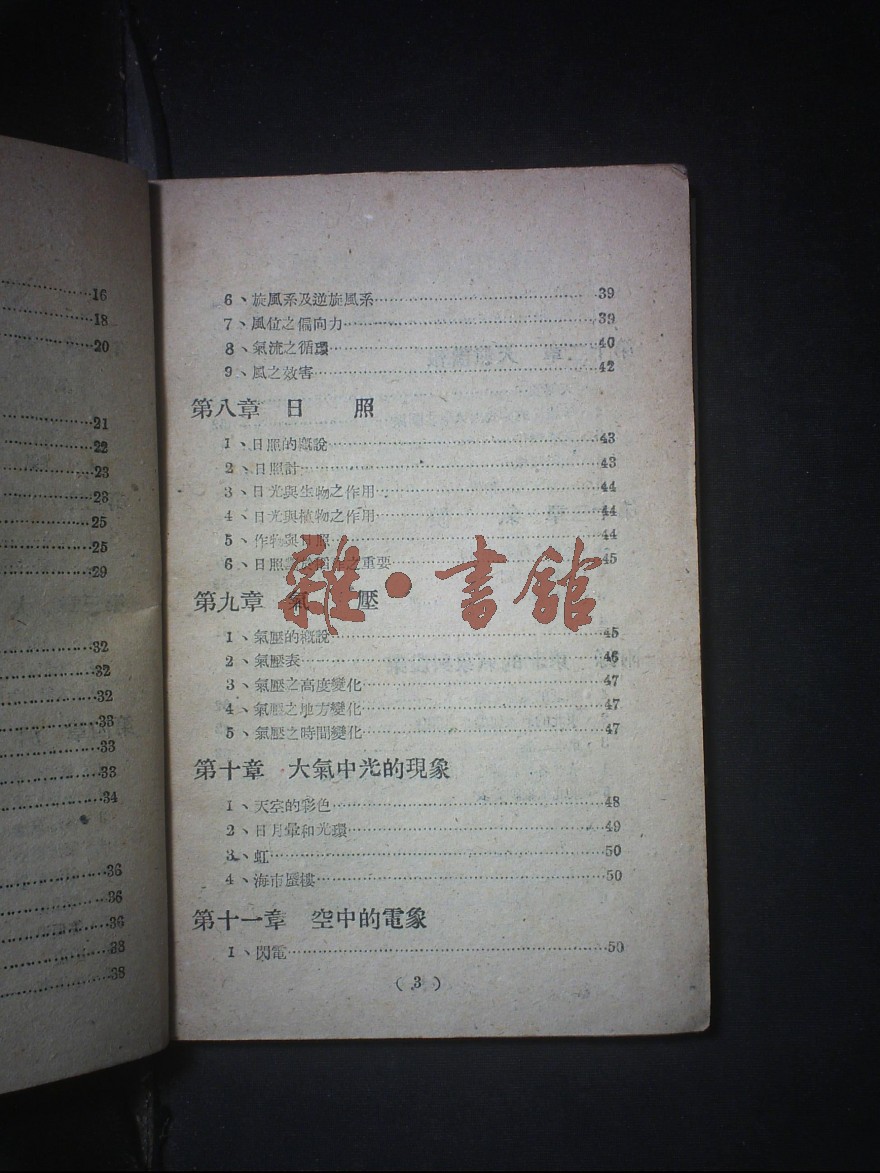 16
18
20
21
22
23
23
25
25
29
32
32
32
33
33
33
34
36
36
36
38
38
6、旋風系及逆旋風系……39
7、風位之偏向力……39
8、氣流之循環……40
9、風之效害……42
第八章 日 照
1、日照的概說……43
2、日照計……43
3、日光與生物之作用……44
4、日光與植物之作用……44
5、作物與日照……44
6、日照 之重要……45
第九章 氣 壓
1、氣壓的概說……45
2、氣壓表……46
3、氣壓之高度變化……47
4、氣壓之地方變化……47
5、氣壓之時間變化……47
第十章 大氣中光的現象
1、天空的彩色……48
2、日月暈和光環……49
3、虹……50
4、海市蜃樓……50
第十一章 空中的電象
1、閃電……50
(3)
雜·書館